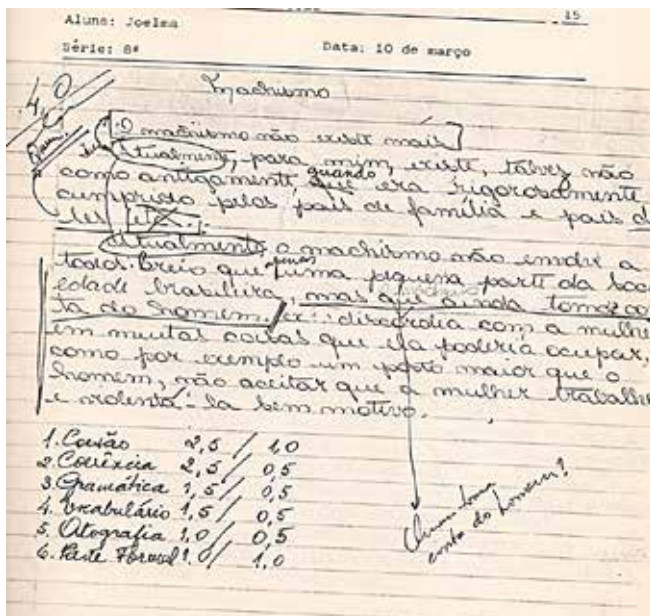 15
Aluna: Joelma
Série: 8ª Data: 10 de março
4,0
Machismo
O machismo não existe mais
Atualmente, para mim, existe, talvez não
como antigamente, quando que era rigorosamente
cumprido pelos pais de família e pais
etc.
Atualmente, o machismo não envolve a
todos. Creio que apenas uma pequena parte da soci
edade brasileira, mas que ainda toma co
ta do homem. ex: discordia com a mulher
em muitas coisas que ela poderia ocupar,
como por exemplo um posto maior que o
homem, não aceitar que a mulher trabalhe
e violentá-la sem motivo.
1. Coesão 2,5 / 1,0
2. Coerência 2,5 / 0,5
3. Gramática 1,5 / 0,5
4. Vocabulário 1,5 / 0,5
5. Otografia 1,0 / 0,5
6. Parte Formal 1,0 / 1,0
Quem toma
conta do homem?